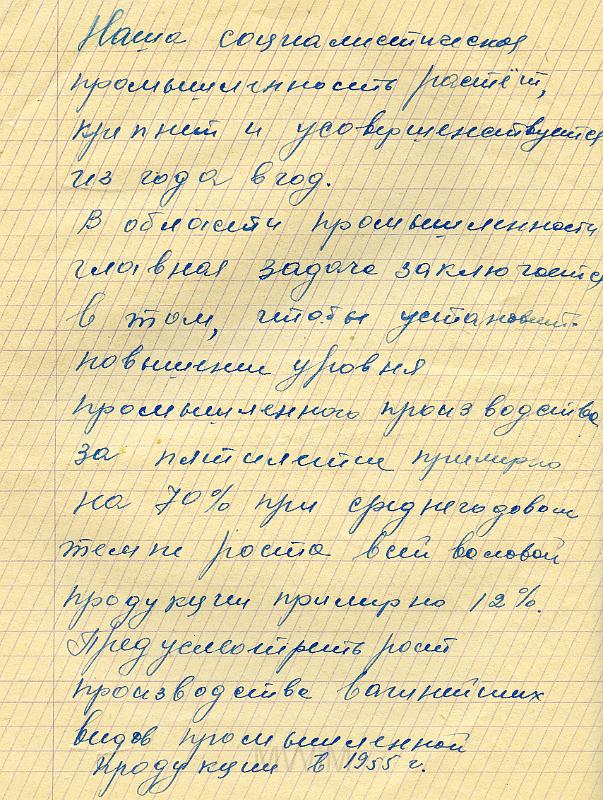 Наша социалистическая
промышленность растёт,
крепнит и усовершенствуется
из года в год.
В области промышленности
главная задача заключается
в том, чтобы установить
повышении уровня
промышленного производства
за пятилетие примирно
на 70% при среднегодовом
темпе роста всей валовой
продукции примирно 12%.
Предусмотреть рост
производства важнейших
видов промышленной
продукции в 1955 г.